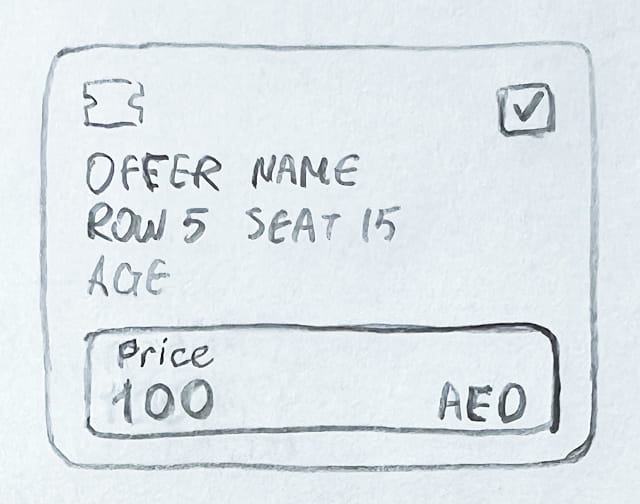 OFFER NAME
ROW 5 SEAT 15
AGE
Price
100 AED